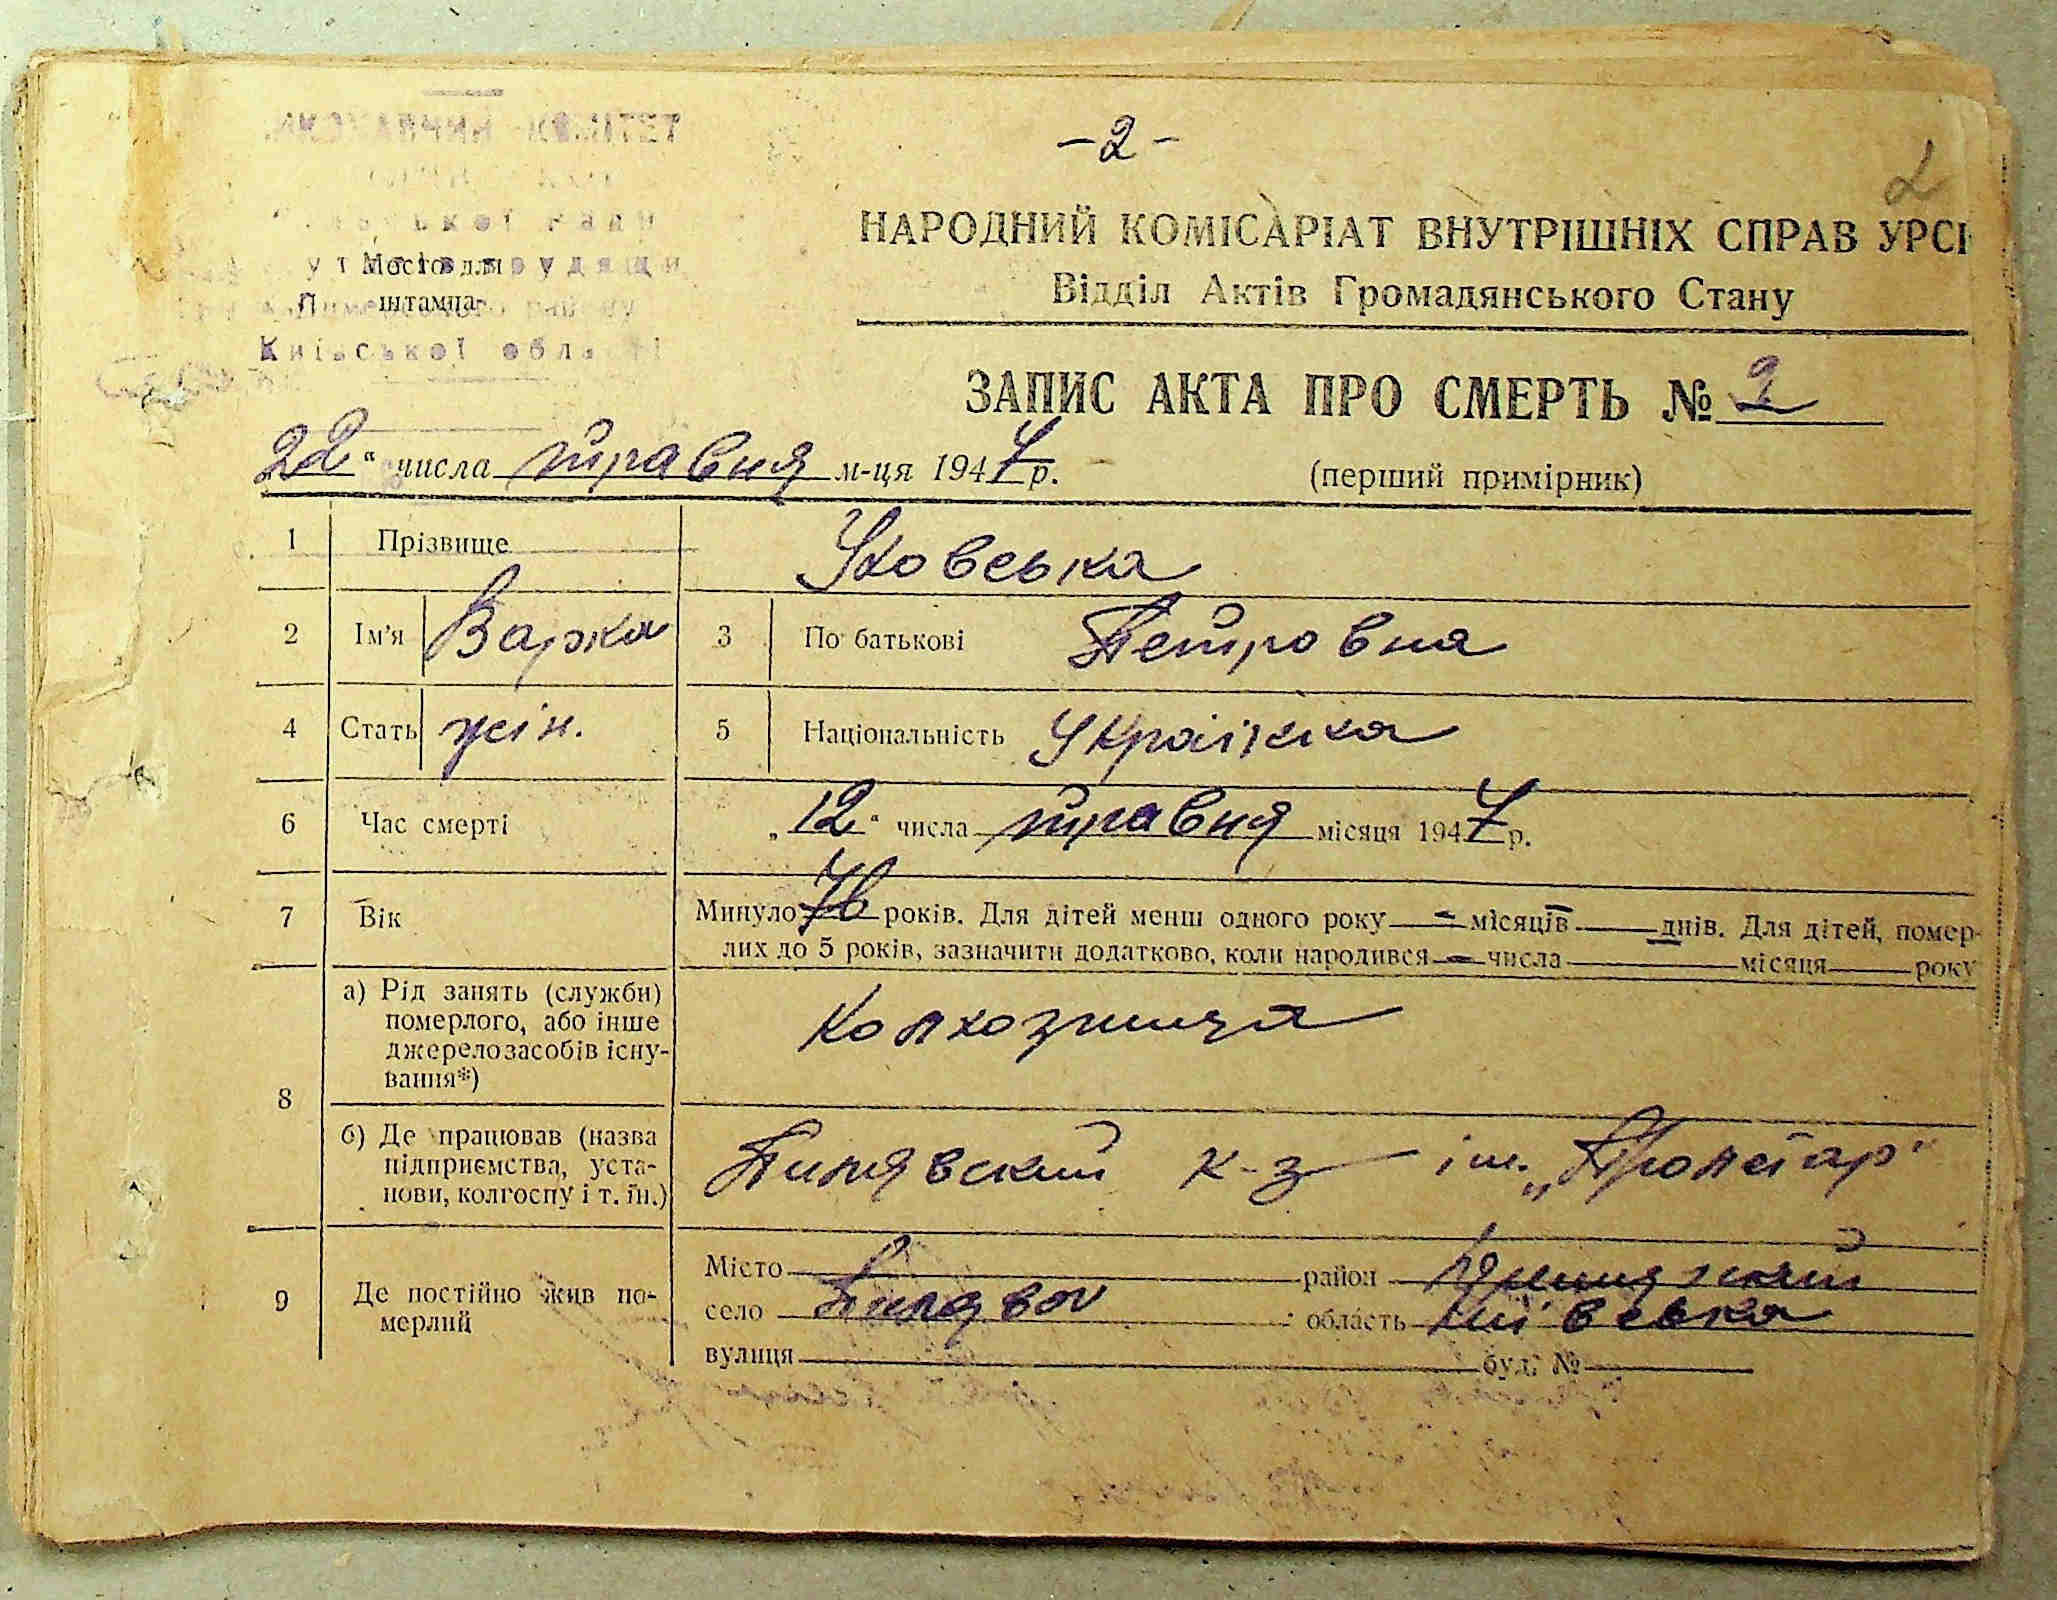 - 2 -
2
КОМІТЕТ
Місце для
штампа
Київської області
НАРОДНИЙ КОМІСАРІАТ ВНУТРІШНІХ СПРАВ УРСР
Відділ Актів Громадянського Стану
ЗАПИС АКТА ПРО СМЕРТЬ № 2
„22“ числа травня м-ця 1947 р.
(перший примірник)
1 Прізвище
2 Ім'я Варка 3 По батькові Петровна
4 Стать жін. 5 Національність Українка
6 Час смерті „12“ числа травня місяця 1947 р.
7 Вік Минуло 76 років. Для дітей менш одного року — місяців — днів. Для дітей, помер-
лих до 5 років, зазначити додатково, коли народився — числа місяця року
8 а) Рід занять (служби)
померлого, або інше
джерело засобів існу-
вання*)
Колхозниця
б) Де працював (назва
підприємства, уста-
нови, колгоспу і т. ін.)
Пилявский к-з ім. „Пролетар“
9 Де постійно жив по-
мерлий
Місто район
село Пиляво область Київська
вулиця буд. №